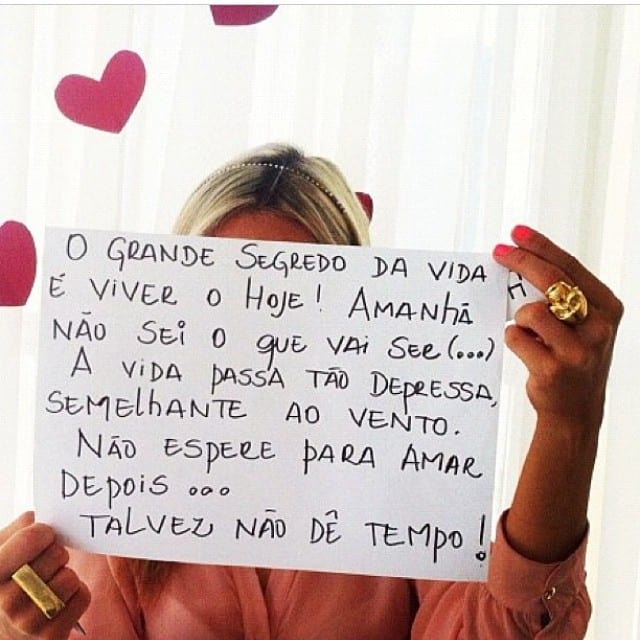 O GRANDE SEGREDO DA VIDA
É VIVER O HOJE! AMANHÃ
NÃO SEI O QUE VAI SER(...)
A VIDA PASSA TÃO DEPRESSA,
SEMELHANTE AO VENTO.
NÃO ESPERE PARA AMAR
DEPOIS...
TALVEZ NÃO DÊ TEMPO!